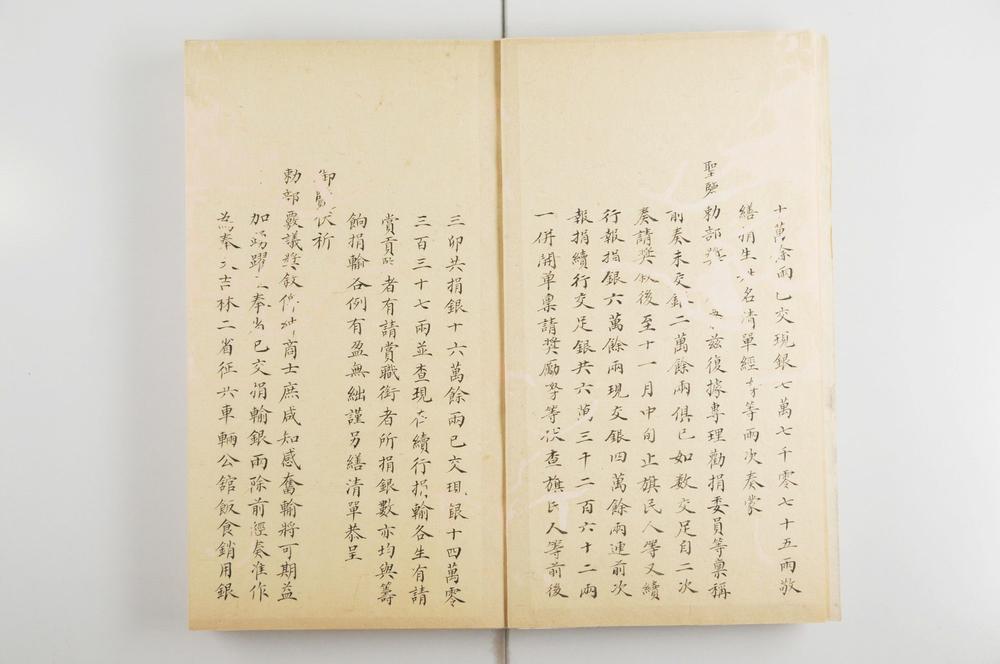 十萬餘兩已交現銀七萬七千零七十五兩敬
繕捐生姓名清單經奴才等兩次奏蒙
聖鑒
勅部獎 茲復據專理勸捐委員等稟稱
前奏未交銀二萬餘兩俱已如數交足自二次
奏請獎敘後至十一月中旬止旗民人等又續
行報捐銀六萬餘兩現交銀四萬餘兩連前次
報捐續行交足銀共六萬三千二百六十二兩
一併開單稟請獎勵奴才等伏查旗民人等前後
三卯共捐銀十六萬餘兩已交現銀十四萬零
三百三十七兩並查現在續行捐輸各生有請
賞貢 者有請賞職銜者所捐銀數亦均與籌
餉捐輸各例有盈無絀謹另繕清單恭呈
御覽伏祈
勅部覈議獎敘 商士庶咸知感奮輸將可期益
加踴躍 奉省已交捐輸銀兩除前經奏准作
為奉天吉林二省征兵車輛公館飯食銷用銀